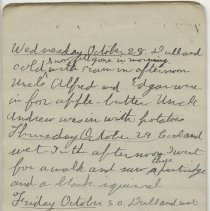 Wednesday October 28 Dull and
cold snow all gone in morning
with rain in afternoon
Uncle Alfred and Edgar were
in for apple butter Uncle
Andrew was in with potatoes
Thursday October 29 Cool and
wet In th afternoon I went
for a walk and saw a partridge
and a black squirrel
Friday October 30 Dull and wet